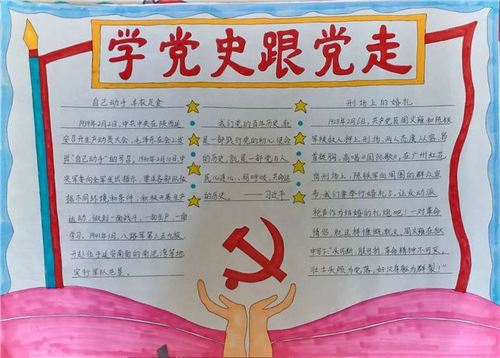 学党史跟党走
自己动手 丰衣足食
1939年2月2日,中共中央在陕西延
安召开生产动员大会,毛泽东在会上发
出"自己动手"的号召。1940年2月10日,中
央军委向全军发出指示,要求各部队依
据不同环境和条件,积极开展生产
运动,做到一面战斗,一面生产,一面
学习。1941年3月,八路军第三五九旅
开赴位于延安南面的南泥湾等地
实行军队屯垦。
我们党的百年历史,就
是一部践行党的初心使命
的历史,就是一部党与人
民心连心、同呼吸、共命运
的历史。——习近平
刑场上的婚礼
1928年2月6日,共产党员周文雍和陈铁
军被敌人押上刑场。两人态度从容,昂
首挺胸,高唱《国际歌》。在广州红花
岗刑场上,陈铁军向周围的群众宣
布:我们要举行婚礼了,让反动派
枪声作为结婚的礼炮吧!一对革命
情侣,就这样慷慨就义。周文雍在狱
中写下"头可断,肢可折,革命精神不可灭。
壮士头颅为党落,好汉身躯为群裂!"